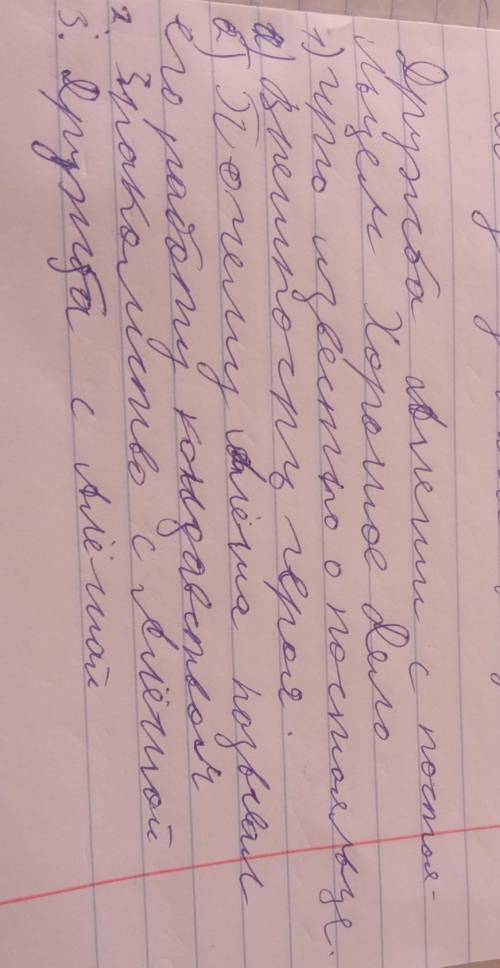 Дружба Алёши с постоя-
льцем Хорошее Дело
1) Что известно о постояльце.
а) Внешность героя
б) Почему Алёша называл
его работу колдавством
2 Знакомство с Алёшой
3. Дружба с Алёшай